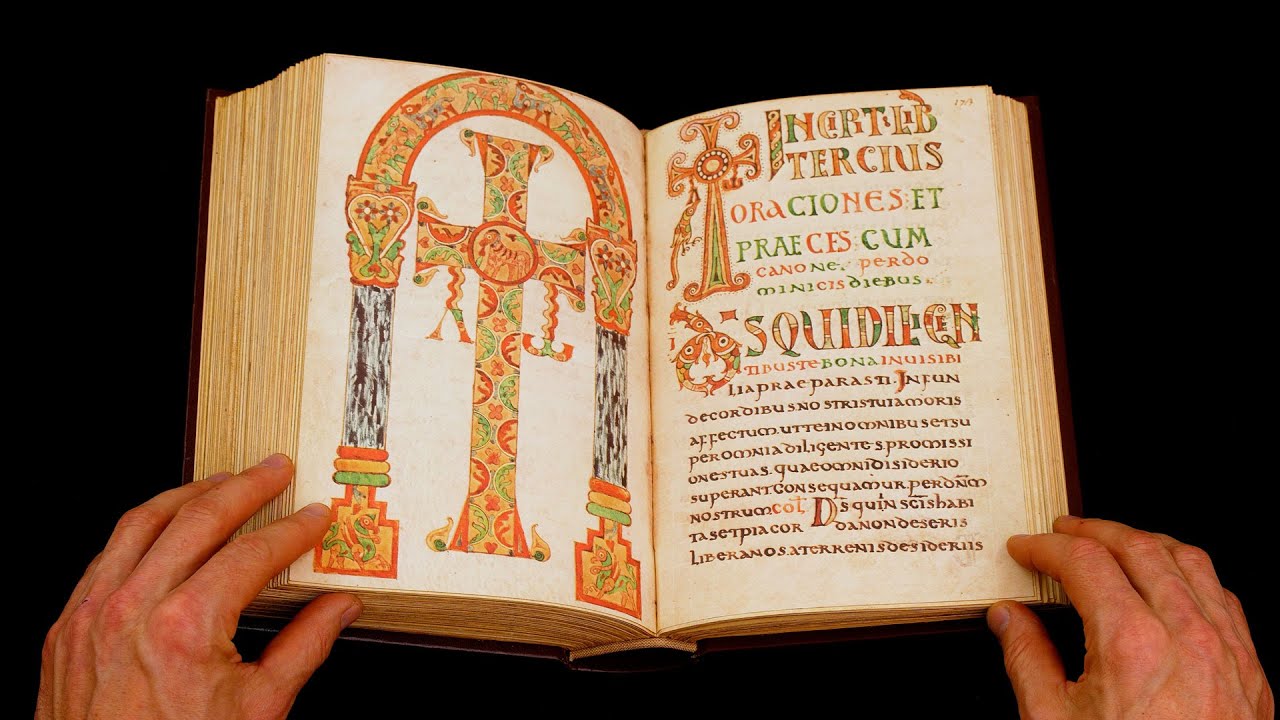 173
INCIPIT·LIB
TERCIUS
ORACIONES:ET
PRAECES CUM
CANONE. PERDO
MINICIS DIEBUS.
DS QUIDILIGEN
TIBUSTE BONA INVISIBI
LIA PRAEPARASTI. INFUN
DE CORDIBUS NOSTRIS TUI AMORIS
AFFECTUM. UT TE IN OMNIBUS ET SU
PER OMNIA DILIGENTES. PROMISSI
ONES TUAS. QUAE OMNI DISIDERIO
SUPERANT CONSEQUAMUR. PER DNM
NOSTRUM COL DS QUI IN SCIS HABI
TAS ET PIA COR DA NON DESERIS
LIBERA NOS. A TERRENIS DESIDERIIS